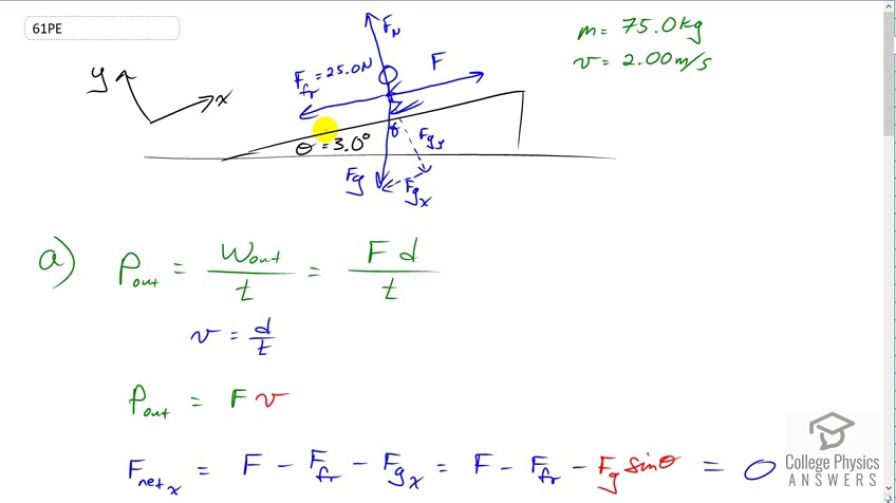 61PE
F_N
m = 75.0kg
v = 2.00m/s
F_fr = 25.0N
F
y
x
θ = 3.0°
θ
F_gy
F_g
F_gx
a) P_out = W_out / t = F d / t
v = d / t
P_out = F v
F_net x = F - F_fr - F_gx = F - F_fr - F_g sinθ = 0
College Physics
ANSWERS